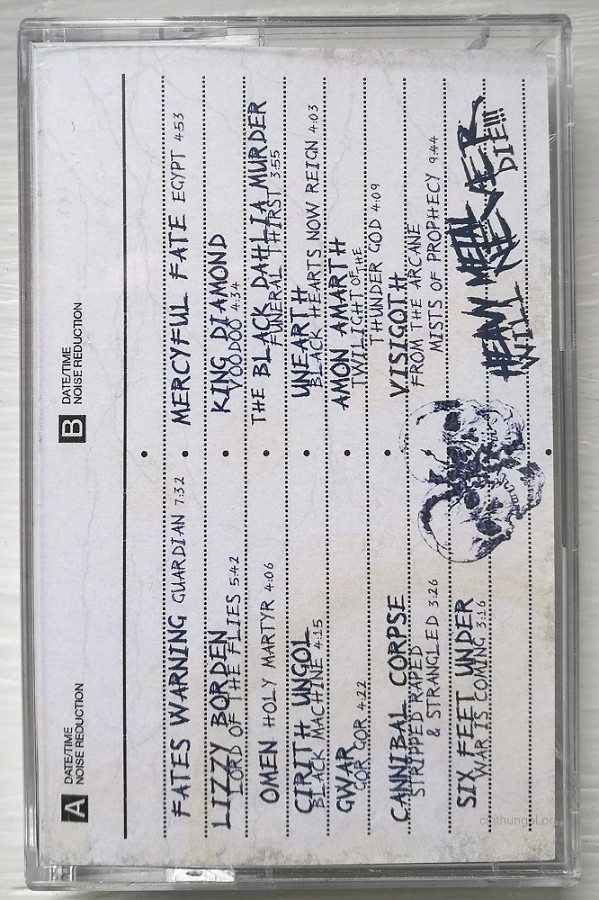 A DATE/TIME
NOISE REDUCTION
B DATE/TIME
NOISE REDUCTION
FATES WARNING GUARDIAN 7:32
LIZZY BORDEN
LORD OF THE FLIES 5:42
OMEN HOLY MARTYR 4:06
CIRITH UNGOL
BLACK MACHINE 4:15
GWAR
GOR GOR 4:22
CANNIBAL CORPSE
STRIPPED RAPED
& STRANGLED 3:26
SIX FEET UNDER
WAR IS COMING 3:16
MERCYFUL FATE EGYPT 4:53
KING DIAMOND
VOODOO 4:34
THE BLACK DAHLIA MURDER
FUNERAL THIRST 3:55
UNEARTH
BLACK HEARTS NOW REIGN 4:03
AMON AMARTH
TWILIGHT OF THE
THUNDER GOD 4:09
VISIGOTH
FROM THE ARCANE
MISTS OF PROPHECY 9:44
HEAVY METAL
WILL NEVER
DIE!!!
cirithungol.org